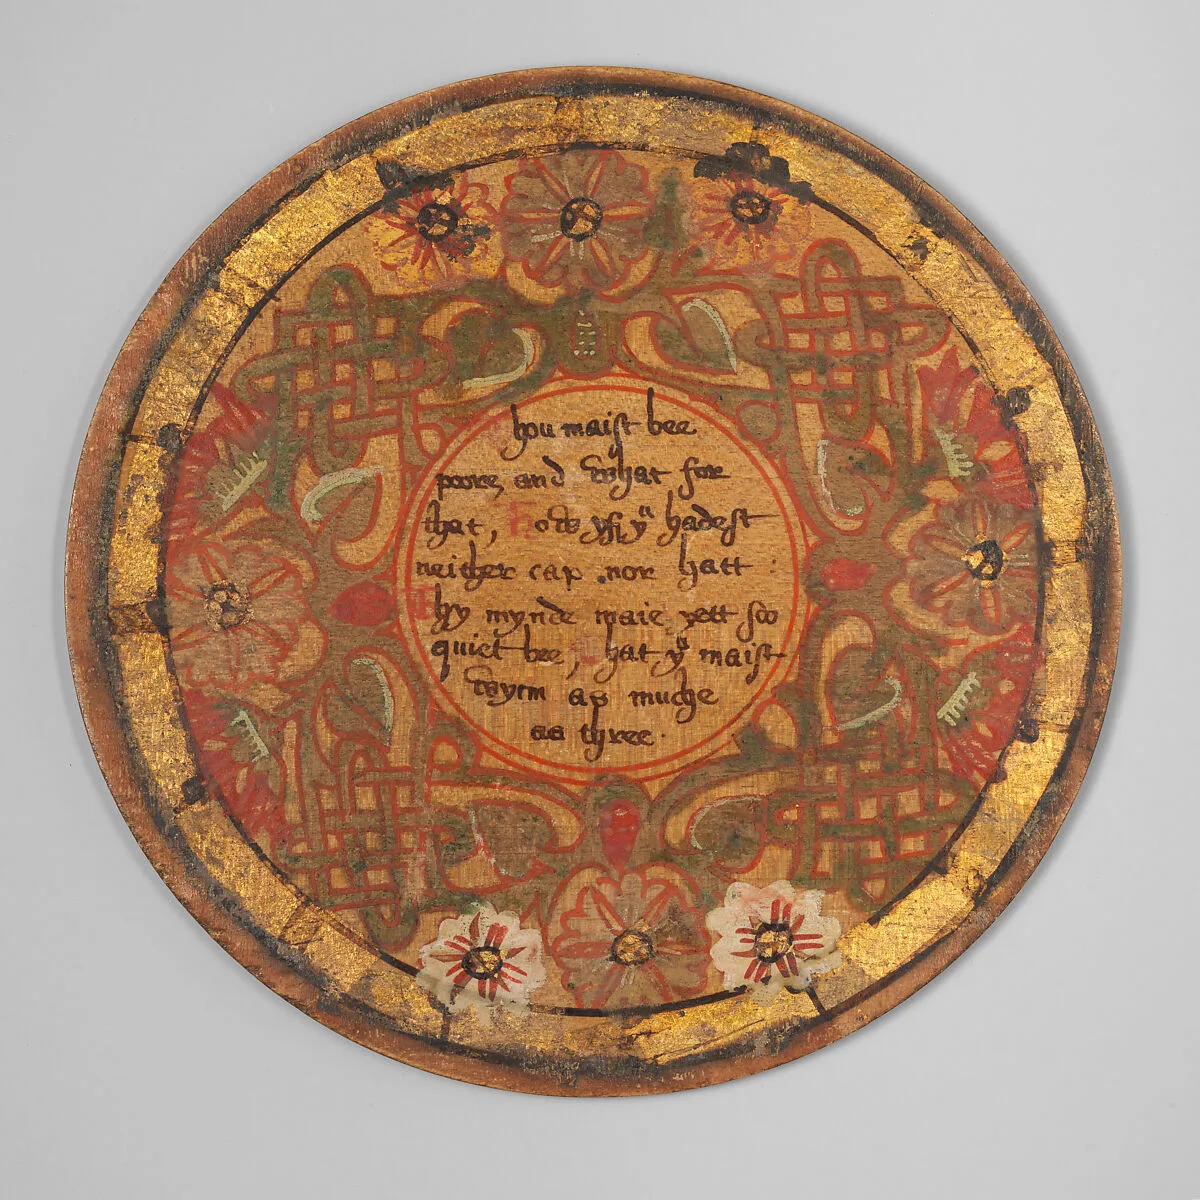 hou maist bee
poore, and what for
that, How yf yu hadest
neither cap nor hatt :
Thy mynde maie yett soo
quiet bee, That yu maist
wynn as muche
as three.